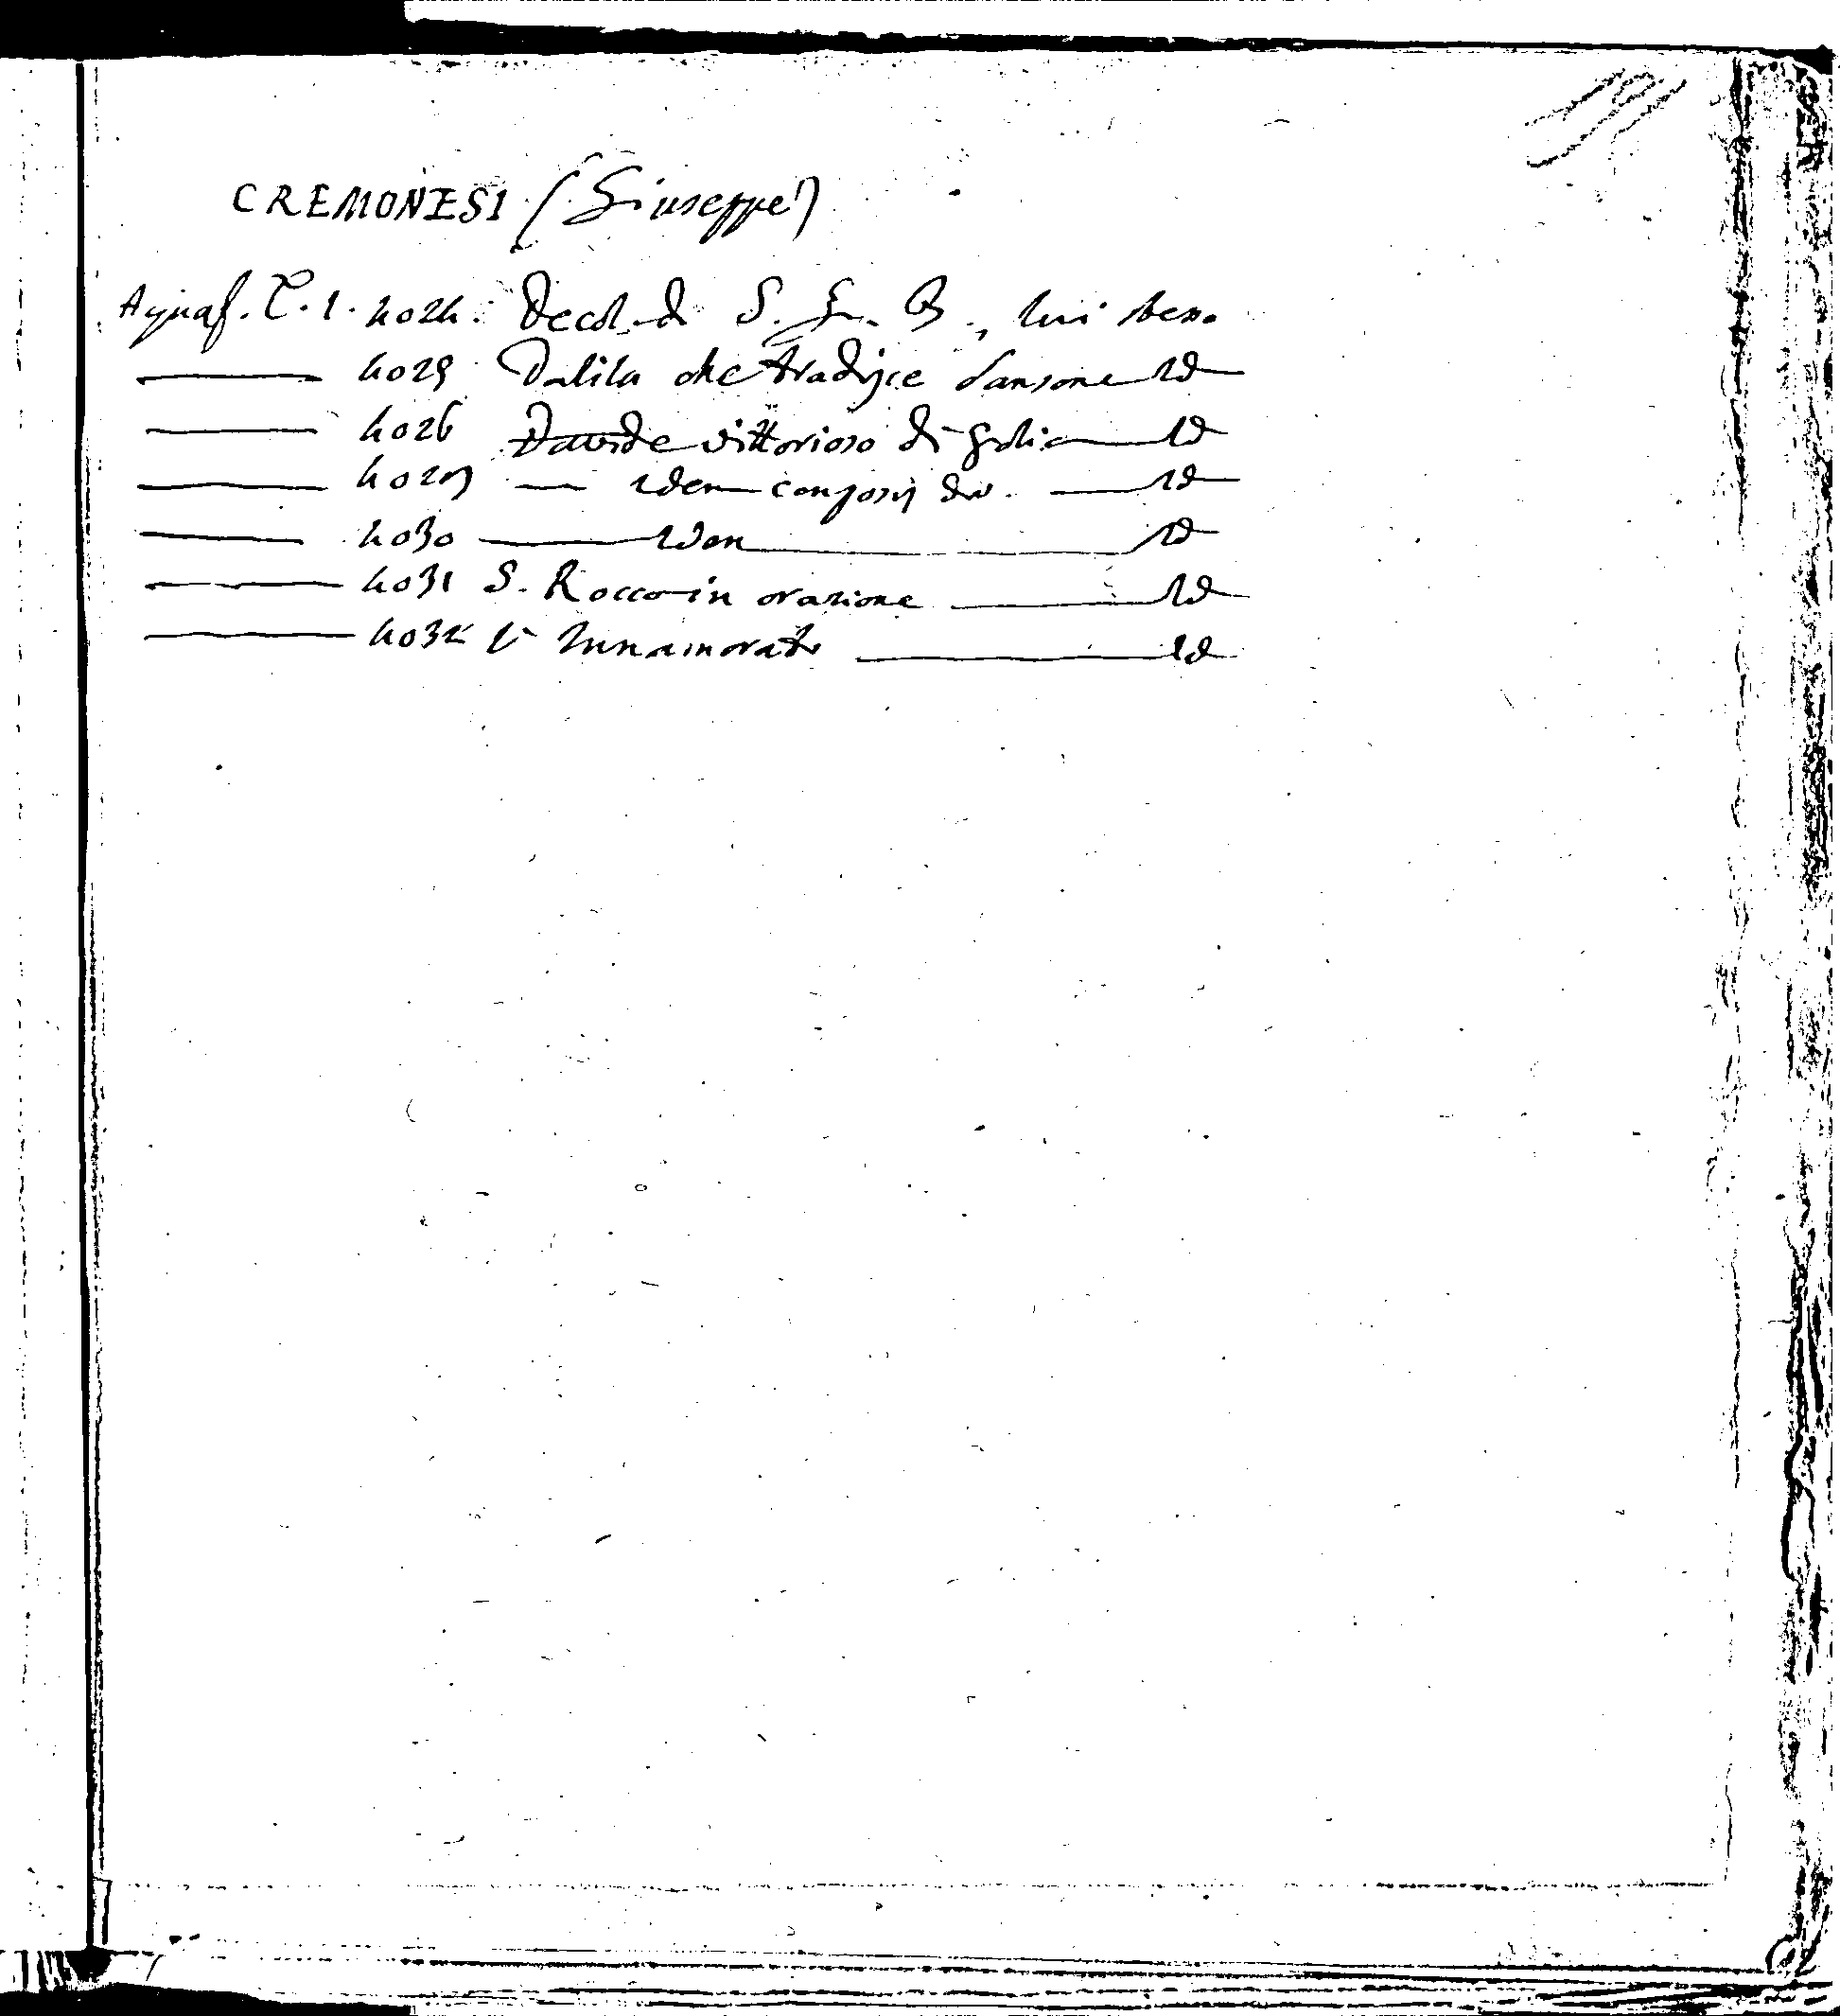 CREMONESI (Giuseppe)
Aquaf. T. 1. 4024. Decol. di S. G. B., lui stesso
4025 Dalila che tradisce Sansone Id
4026 Davide vittorioso di Golia Id
4029 Idem composiz div. Id
4030 Idem Id
4031 S. Rocco in orazione Id
4032 L' Innamorato Id